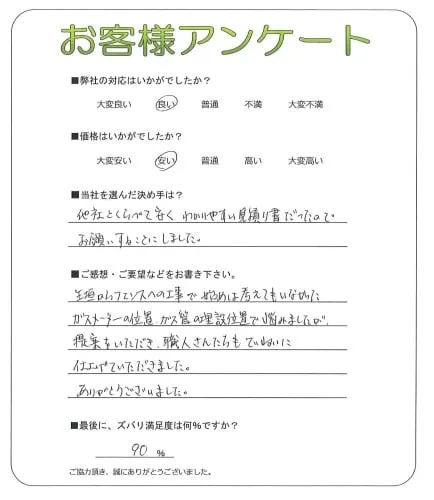 お客様アンケート
■弊社の対応はいかがでしたか？
大変良い 良い 普通 不満 大変不満
■価格はいかがでしたか？
大変安い 安い 普通 高い 大変高い
■当社を選んだ決め手は？
他社とくらべて安く わかりやすい見積り書だったので
お願いすることにしました。
■ご感想・ご要望などをお書き下さい。
生垣からフェンスへの工事で始めは考えてもいなかった
ガスメーターの位置、ガス管の埋設位置で悩みましたが、
提案をいただき、職人さんたちもていねいに
仕上げていただきました。
ありがとうございました。
■最後に、ズバリ満足度は何％ですか？
90 ％
ご協力頂き、誠にありがとうございました。